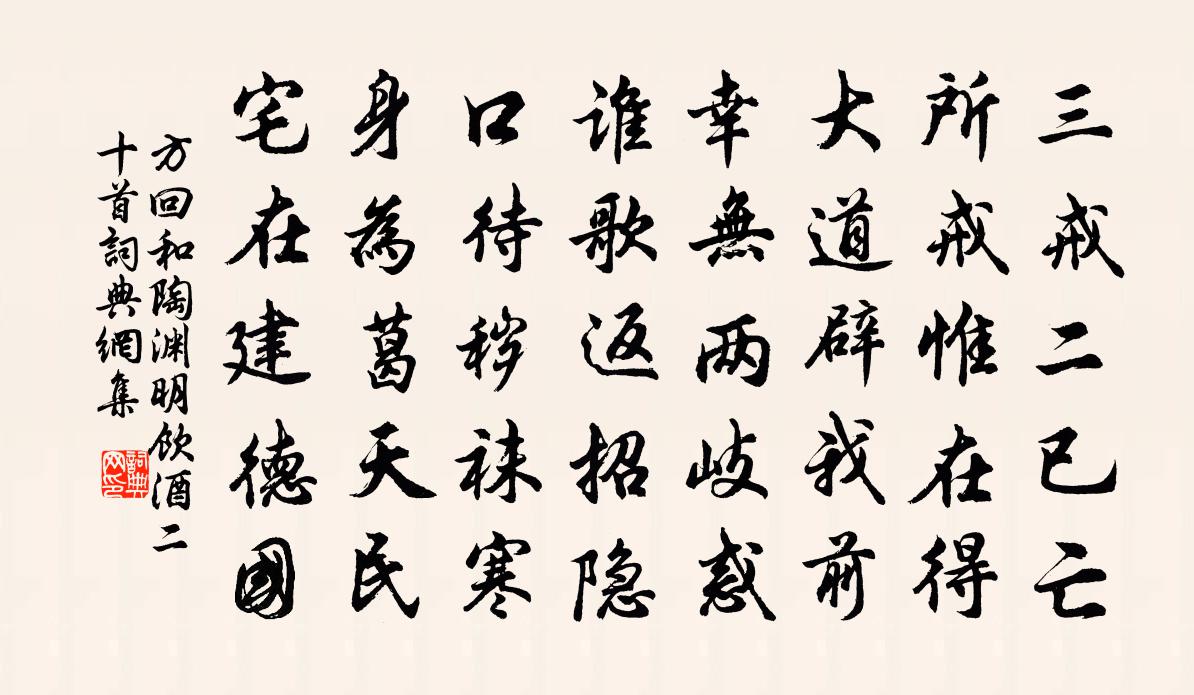 三戒二已亡
所戒惟在得
大道辟我前
幸無两岐惑
谁歌返招隐
口待移袜寒
身為葛天民
宅在建德國
方回和陶渊明飲酒二
十首詞典網集
詞典网印